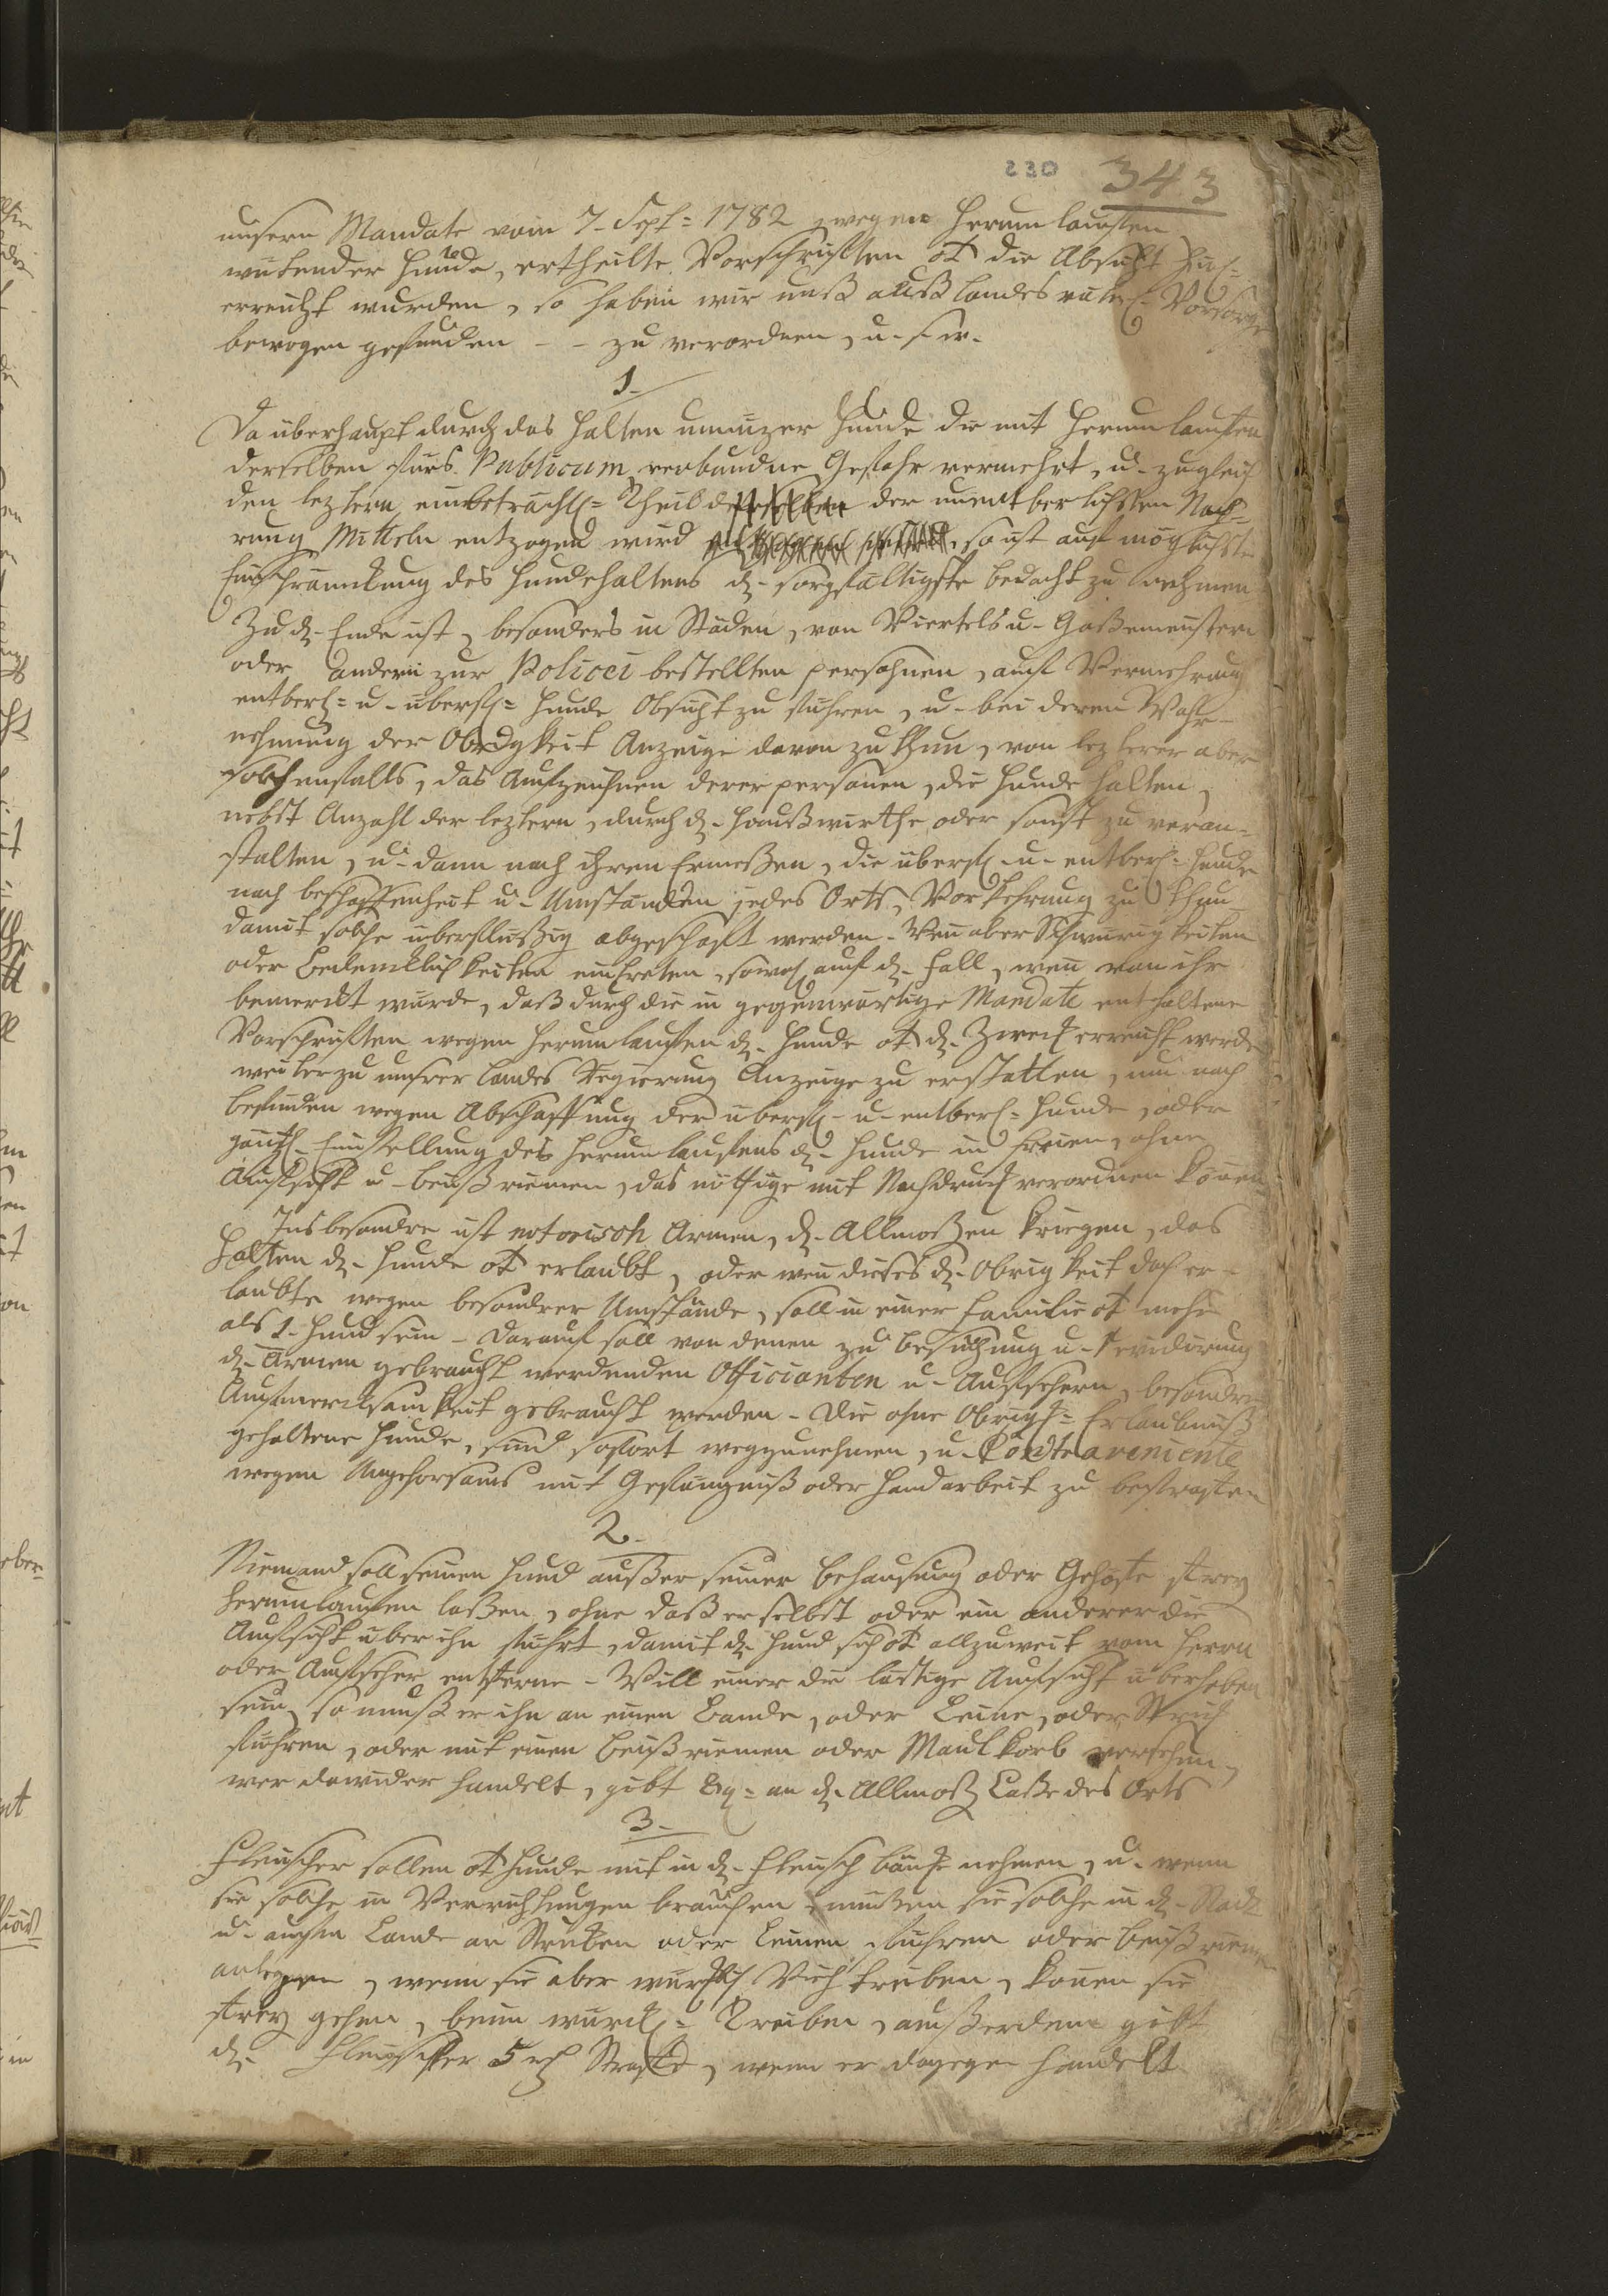 230 343
unsern Mandate vom 7. Sept= 1782 wegen herum lauffen
wütender Hunde, ertheilte Vorschrifften ot die Absicht
erreicht wurden, so haben wir unß auß landesväterl= Vorsorge
bewogen gefunden - - zu verordnen, u. s. w.
1.
Da überhaupt durch das Halten unnüzer Hunde die mit herum lauffen
derselben fürs Publicum verbundne Gefahr vermehrt, u. zugleich
den leztern, ein beträchtl= Theil der unentberlichsten Nah=
rung Mitteln entzogen wird so ist auf möglichste
Einschränckung des Hundehaltens d. sorgfältigste bedacht zu nehmen
Zu d. Ende ist, besonders in Städen, von Viertels u. Gaßemeistern
oder andern zur Policei bestellten persohnen, auf Vermehrung
entberl= u. überfl= Hunde Obsicht zu führen, u. bei deren Wahr-
nehmung der Obrigkeit Anzeige davon zu thun, von lezterer aber
solchenfalls, das Aufzeichnen derer personen, die Hunde halten,
nebst Anzahl der leztern, durch d. Haußwirthe oder sonst zu veran=
stalten, u. dann nach ihren Ermeßen, die überfl. u. entberl. Hunde
nach beschaffenheit u. Umständen jedes Orts, Vorkehrung zu thun
damit solche überflüßig abgeschaft werden. Wenn aber Schwürigkeiten
oder Bedencklichkeiten eintreten, sowol auf d. Fall, wenn von ihr
bemerckt würde, daß durch die in gegenwärtige Mandate enthaltene
Vorschrifften wegen herum lauffen d. Hunde ot d. Zweck erreicht werde
weiter zu unsrer landes Regierung Anzeige zu erstatten, um nach
befinden wegen Abschaffung der überfl. u. entberl= Hunde, oder
gänzl. Einstellung des herum lauffens d. Hunde im Freien, ohne
Aufsicht u. beißriemen, das nöthige mit Nachdruck verordnen können
Insbesondre ist notorisch Armen, d. Allmoßen kriegen, das
Halten d. Hunde ot erlaubt, oder wenn dieses d. Obrigkeit doch er-
laubte wegen besondrer Umstände, soll in einer Familie ot mehr
als 1. Hund sein. Darauf soll von denen zu Besuchung u. Revidirung
d. Armen gebraucht werdenden Officianten u. Aufsehern, besondre
Aufmercksamkeit gebraucht werden. Die ohne Obrigk= Erlaubnuß
gehaltene Hunde, sind sofort wegzunehmen, u. Contravenienten
wegen Ungehorsams mit Gefängniß oder Handarbeit zu bestraffen
2.
Niemand soll seinen Hund außer seiner behausung oder Gehöfte frey
herumlaufen laßen, ohne daß er selbst oder ein anderer die
Aufsicht über ihn führt, damit d. Hund sich ot allzuweit vom Herrn
oder Aufseher entferne. Will einer die lästige Aufsicht überhoben
sein, so muß er ihn an einen Bande, oder Leine, oder Strick
führen, oder mit einen Beißriemen oder Maulkorb versehen,
wer dawider handelt, gibt an d. Allmoß Casse des Orts
3.
Fleischer sollen ot Hunde mit in d. Fleischbänke nehmen, u. wenn
sie solche in Verrichtungen brauchen, müßen sie solche in d. Stadt
u. aufm Lande an Stricken oder Leinen führen oder Beißriemen
anlegen, wenn sie aber würckl. Vieh treiben, können sie
frey gehen, beim würckl= Treiben, außerdem gibt
d. Fleischer 5 rh Straffe, wenn er dagegen handelt